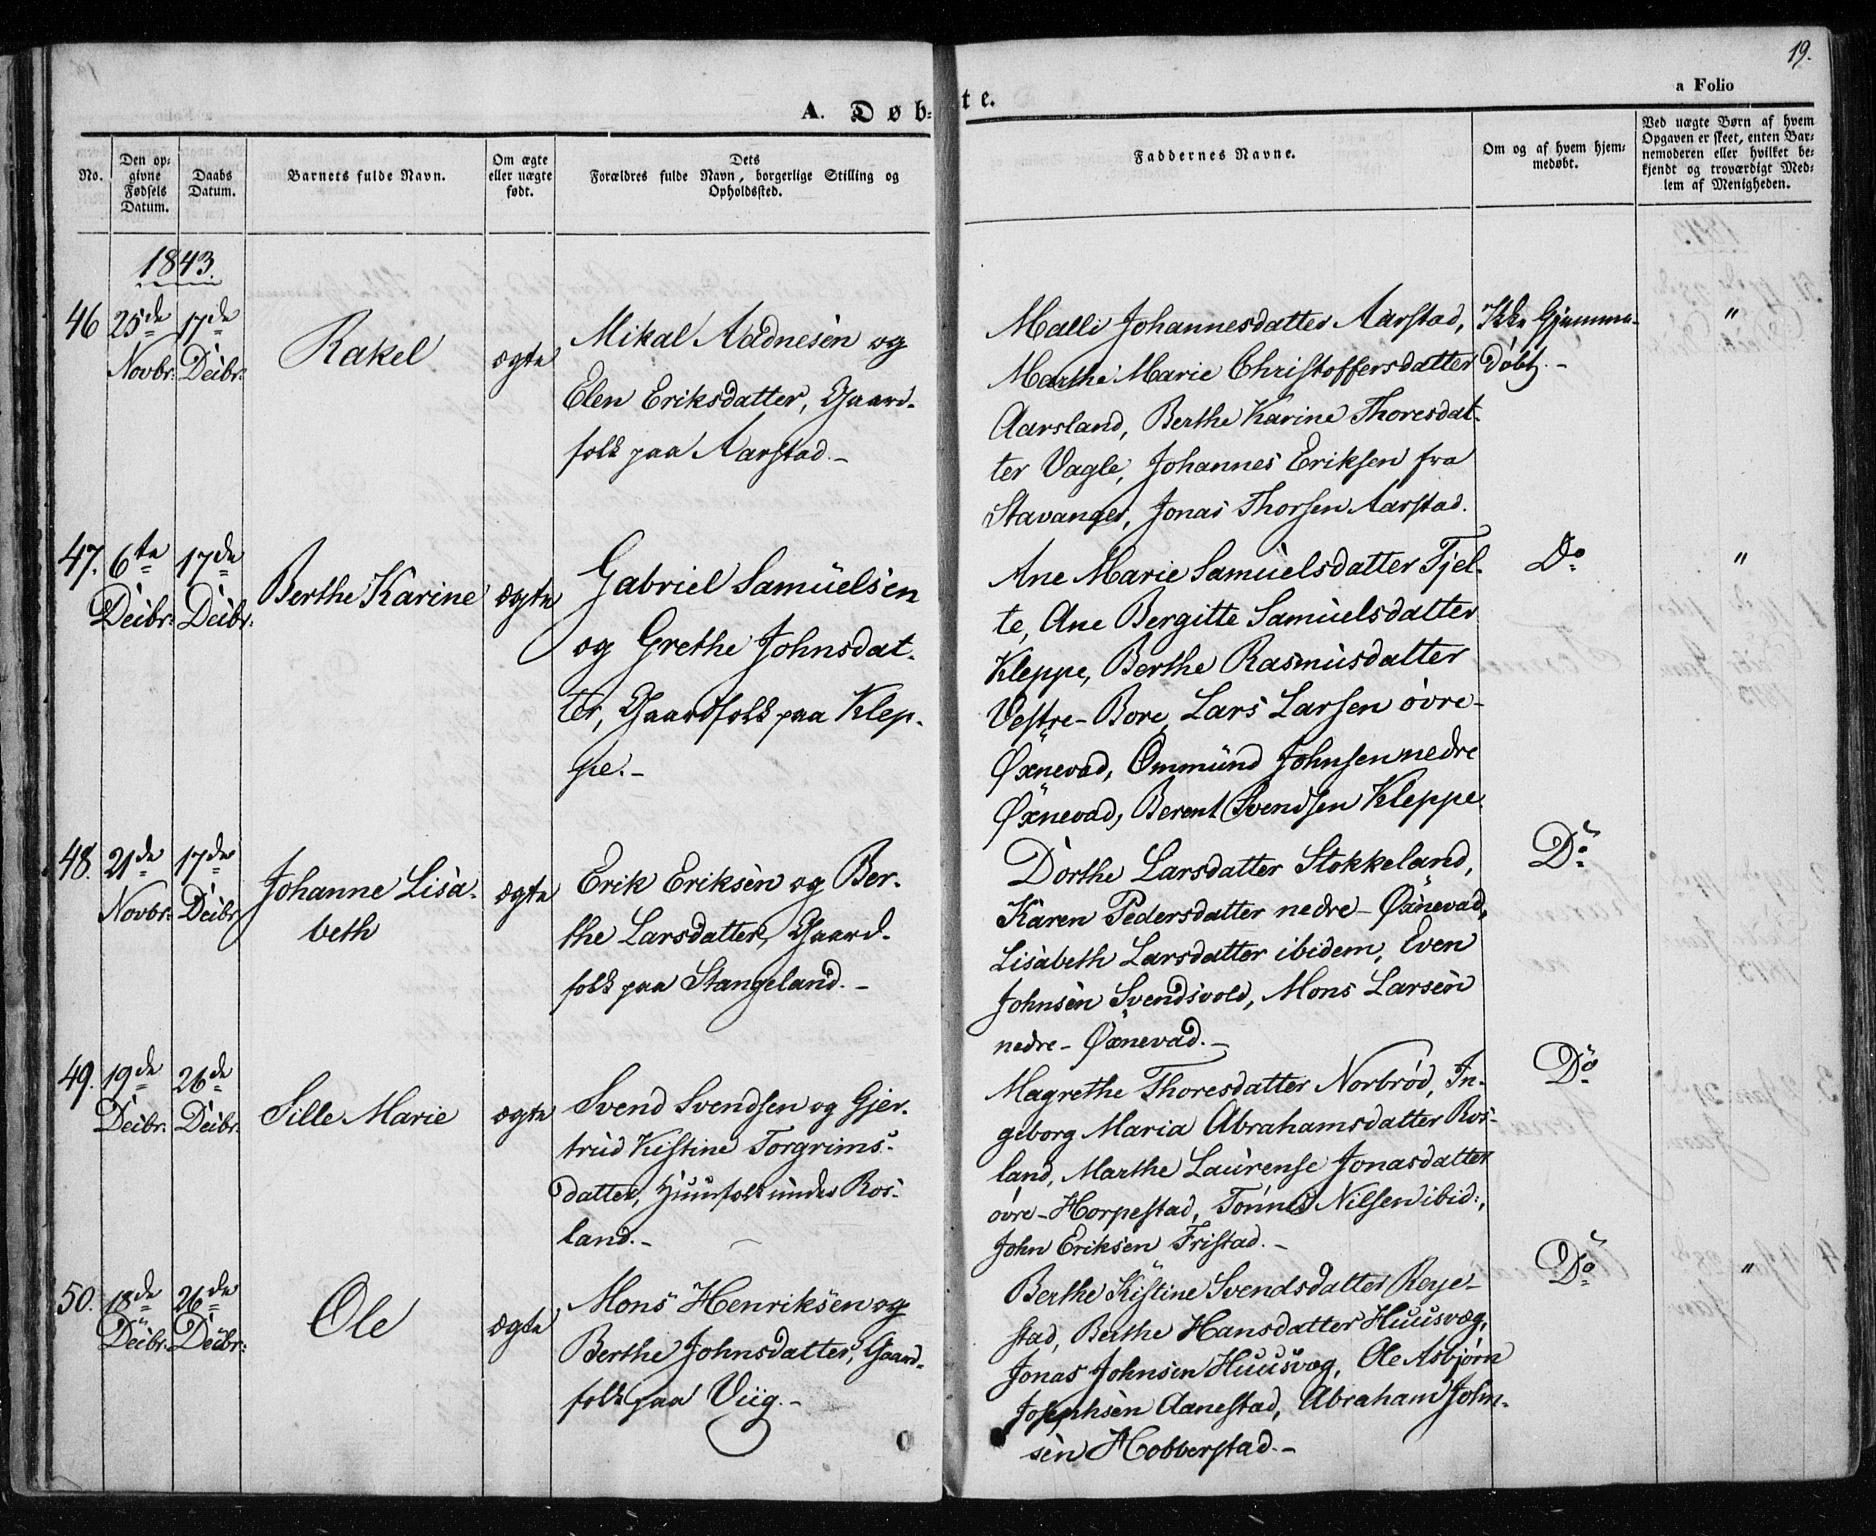 19.
a Folio
A. Døb-
te.
No.
Den op-
givne
Fødsels
Datum.
Daabs
Datum.
Barnets fulde Navn.
Om ægte
eller uægte
født.
Dets
Forældres fulde Navn, borgerlige Stilling og
Opholdssted.
Faddernes Navne.
Om og af hvem hjem-
medøbt.
Ved uægte Børn af hvem
Opgaven er skeet, enten Bar-
nemoderen eller hvilket be-
kjendt og troværdigt Med-
lem af Menigheden.
1843.
46
25de
Novbr:
17de
Deibr:
Rakel
ægte
Mikal Aadnesen og
Elen Eriksdatter, Gaard-
folk paa Aarstad.-
Malli Johannesdatter Aarstad,
Marthe Marie Christoffersdatter
Aarsland, Berthe Karine Thoresdat-
ter Vagle, Johannes Eriksen fra
Stavanger, Jonas Thorsen Aarstad.
Ikke Hjemme-
døbt.-
"
47.
6te
Deibr:
17de
Deibr:
Berthe Karine
ægte
Gabriel Samuelsen
og Grethe Johnsdat-
ter, Gaardfolk paa Klep-
pe.-
Ane Marie Samuelsdatter Tjel-
te, Ane Bergitte Samuelsdatter
Kleppe, Berthe Rasmusdatter
Vestre-Bore, Lars Larsen øvre-
Øxnevad, Ommund Johnsen nedre
Øxnevad, Berent Svendsen Kleppe
Do
"
48.
21de
Novbr:
17de
Deibr
Johanne Lisa-
beth
ægte
Erik Eriksen og Ber-
the Larsdatter, Gaard-
folk paa Stangeland.-
Dorthe Larsdatter Stokkeland,
Karen Pedersdatter nedre-Øxnevad,
Lisabeth Larsdatter ibidem, Even
Johnsen Svendsvold, Mons Larsen
nedre-Øxnevad.-
Do
49.
19de
Deibr:
26de
Deibr:
Sille Marie
ægte
Svend Svendsen og Gjer-
trud Kistine Torgrims-
datter, Huusfolk under Ros-
land.-
Magrethe Thoresdatter Norbrød, In-
geborg Maria Abrahamsdatter Ros-
land, Marthe Laurense Jonasdatter
øvre-Horpestad, Tønnes Nilsen ibid:,
John Eriksen Fristad.-
Do
50.
18de
Deibr:
26de
Deibr:
Ole
ægte
Mons Henriksen og
Berthe Johnsdatter, Gaard-
folk paa Viig.-
Berthe Kistine Svendsdatter Reye-
stad, Berthe Hansdatter Huusvæg,
Jonas Johnsen Huusvæg, Ole Asbjørn
Josephsen Aanestad, Abraham John-
sen Hobberstad.-
Do
"